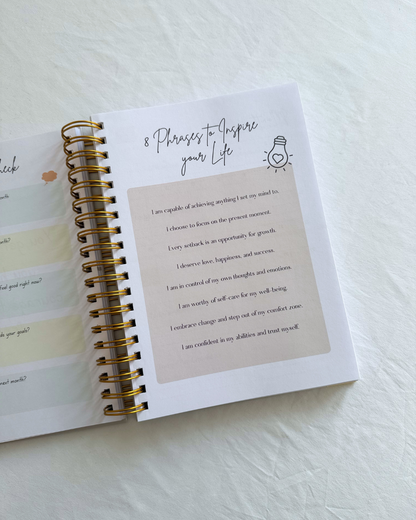 heck
feel good right now?
your goals?
next month?
8 Phrases to Inspire
your Life
I am capable of achieving anything I set my mind to.
I choose to focus on the present moment.
Every setback is an opportunity for growth.
I deserve love, happiness, and success.
I am in control of my own thoughts and emotions.
I am worthy of self-care for my well-being.
I embrace change and step out of my comfort zone.
I am confident in my abilities and trust myself.